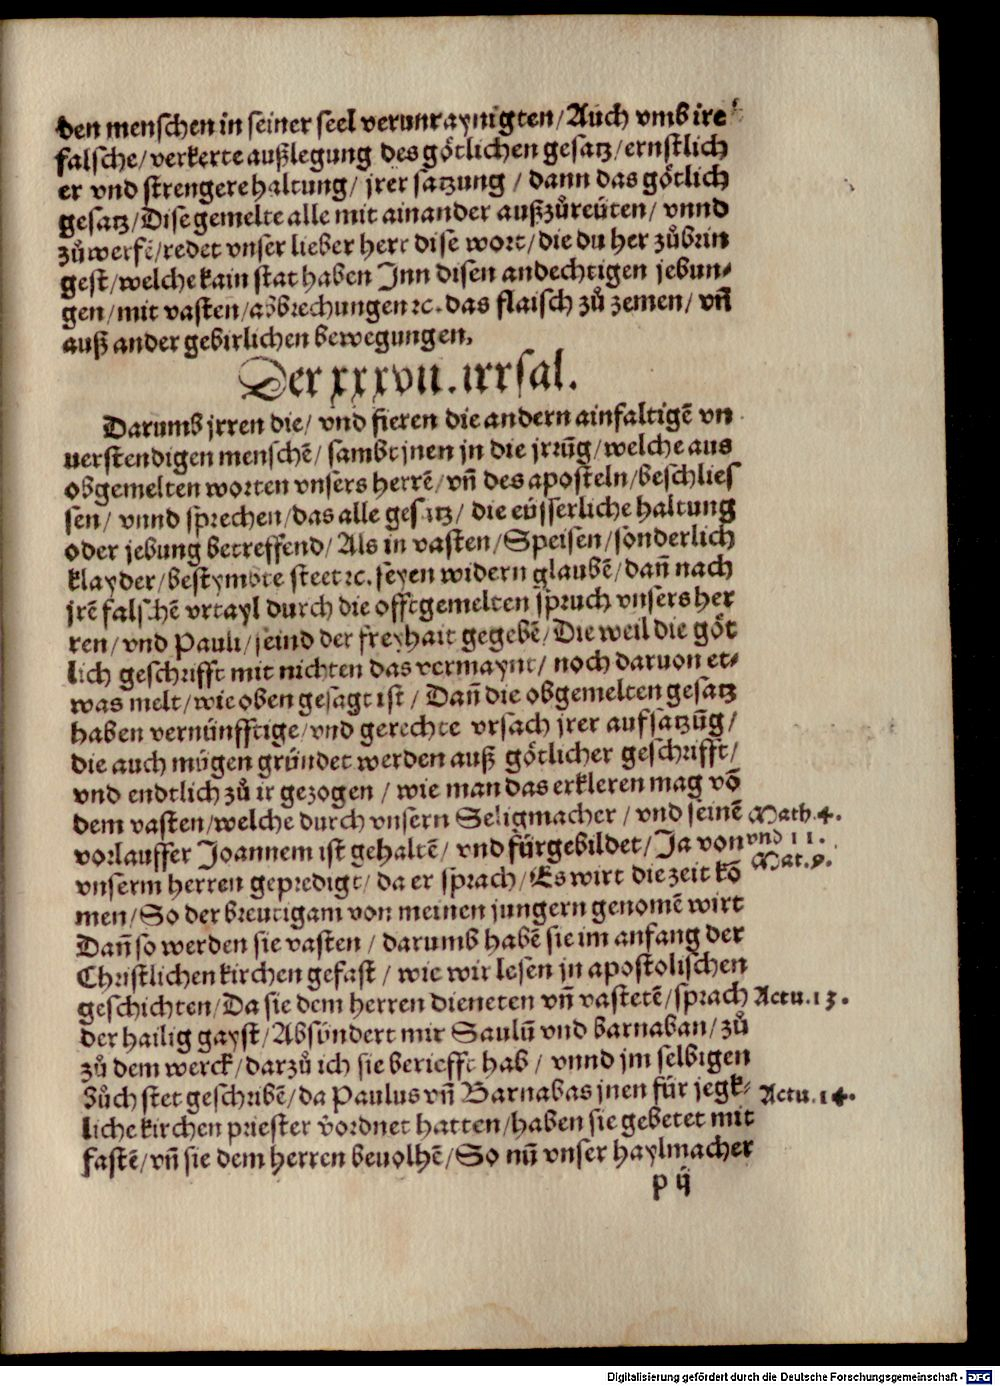 den menschen in seiner seel verunraynigten/Auch vmb ire
falsche/verkerte außlegung des götlichen gesatz/ernstlich
er vnd strengere haltung/ jrer satzung / dann das götlich
gesatz/Dise gemelte alle mit ainander außzůreüten/ vnnd
zůwerfē/redet vnser lieber herr dise wort/die du her zůbrin
gest/welche kain stat haben Jnn disen andechtigen jebun-
gen/mit vasten/abbrechungen ꝛc. das flaisch zů zemen/ vñ
auß ander gebirlichen bewegungen.
Der xxxvii. irrsal.
Darumb jrren die/ vnd fieren die andern ainfaltigē vn
uerstendigen menschē/ sambt jnen jn die jrrūg/welche aus
obgemelten worten vnsers herrē/vñ des aposteln/beschlies
sen/ vnnd sprechen/das alle gesatz/ die eüsserliche haltung
oder jebung betreffend/Als in vasten/Speisen/sonderlich
klayder/bestymbte steet ꝛc. seyen widern glaubē/dañ nach
jrē falschē vrtayl durch die offtgemelten spruch vnsers her
ren/vnd Pauli/seind der freyhait gegebē/Die weil die göt
lich geschrifft mit nichten das vermaynt/ noch daruon et-
was melt/wie oben gesagt ist/ Dañ die obgemelten gesatz
haben vernünfftige/vnd gerechte vrsach jrer aufsatzūg/
die auch mügen gründet werden auß götlicher geschrifft/
vnd endtlich zů ir gezogen / wie man das erkleren mag vō
dem vasten/welche durch vnsern Seligmacher / vnd seinē Math.4.
vorlauffer Joannem ist gehaltē/ vnd fürgebildet/Ja von vnd 11.
vnserm herren gepredigt/ da er sprach/Es wirt die zeit kō Mat.9.
men/So der breutigam von meinen jungern genomē wirt
Dañ so werden sie vasten / darumb habē sie im anfang der
Christlichen kirchen gefast / wie wir lesen jn apostolischen
geschichten/Da sie dem herren dieneten vñ vastetē/sprach Actu.13.
der hailig gayst/Absöndert mir Saulū vnd barnaban/zů
zů dem werck/darzů ich sie beriefft hab / vnnd jm selbigen
Bůch stet geschribē/da Paulus vñ Barnabas jnen für jegk- Actu.14.
liche kirchen priester v̄ordnet hatten/haben sie gebetet mit
fastē/vñ sie dem herren beuolhē/So nū vnser haylmacher
p ij
Digitalisierung gefördert durch die Deutsche Forschungsgemeinschaft - DFG